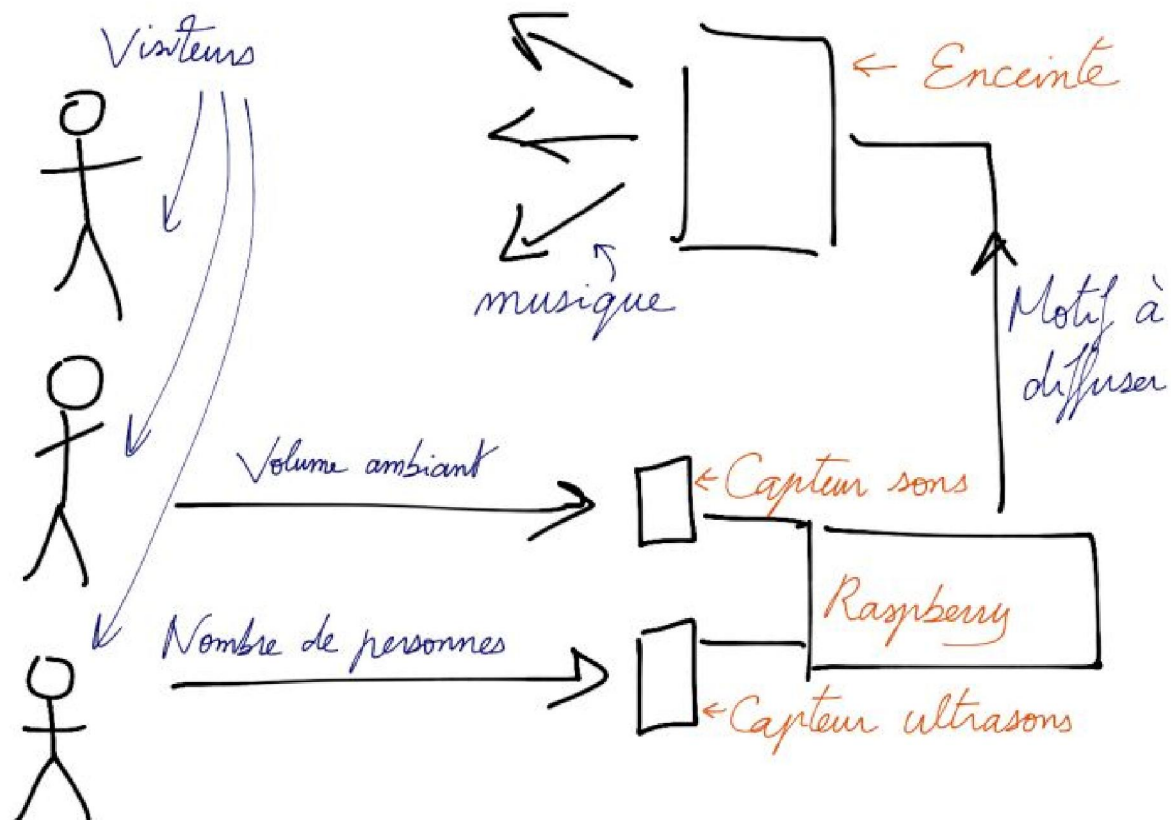 Visiteurs
← Enceinte
musique
Motif à
diffuser
Volume ambiant
← Capteur sons
Raspberry
Nombre de personnes
← Capteur ultrasons